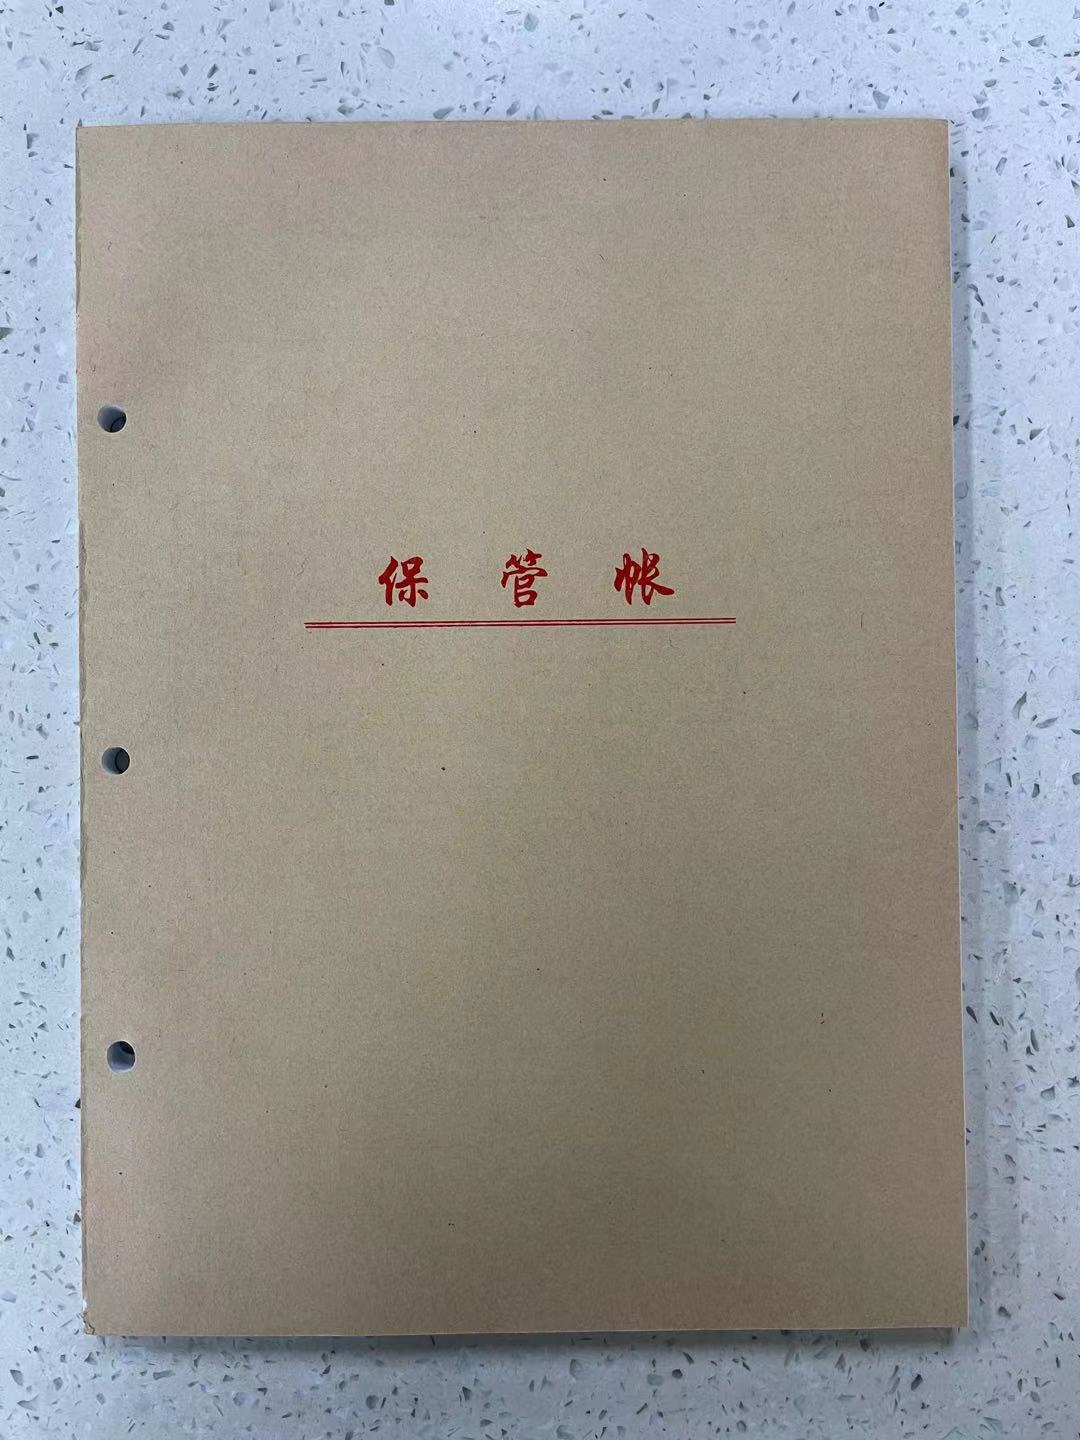 保管帐